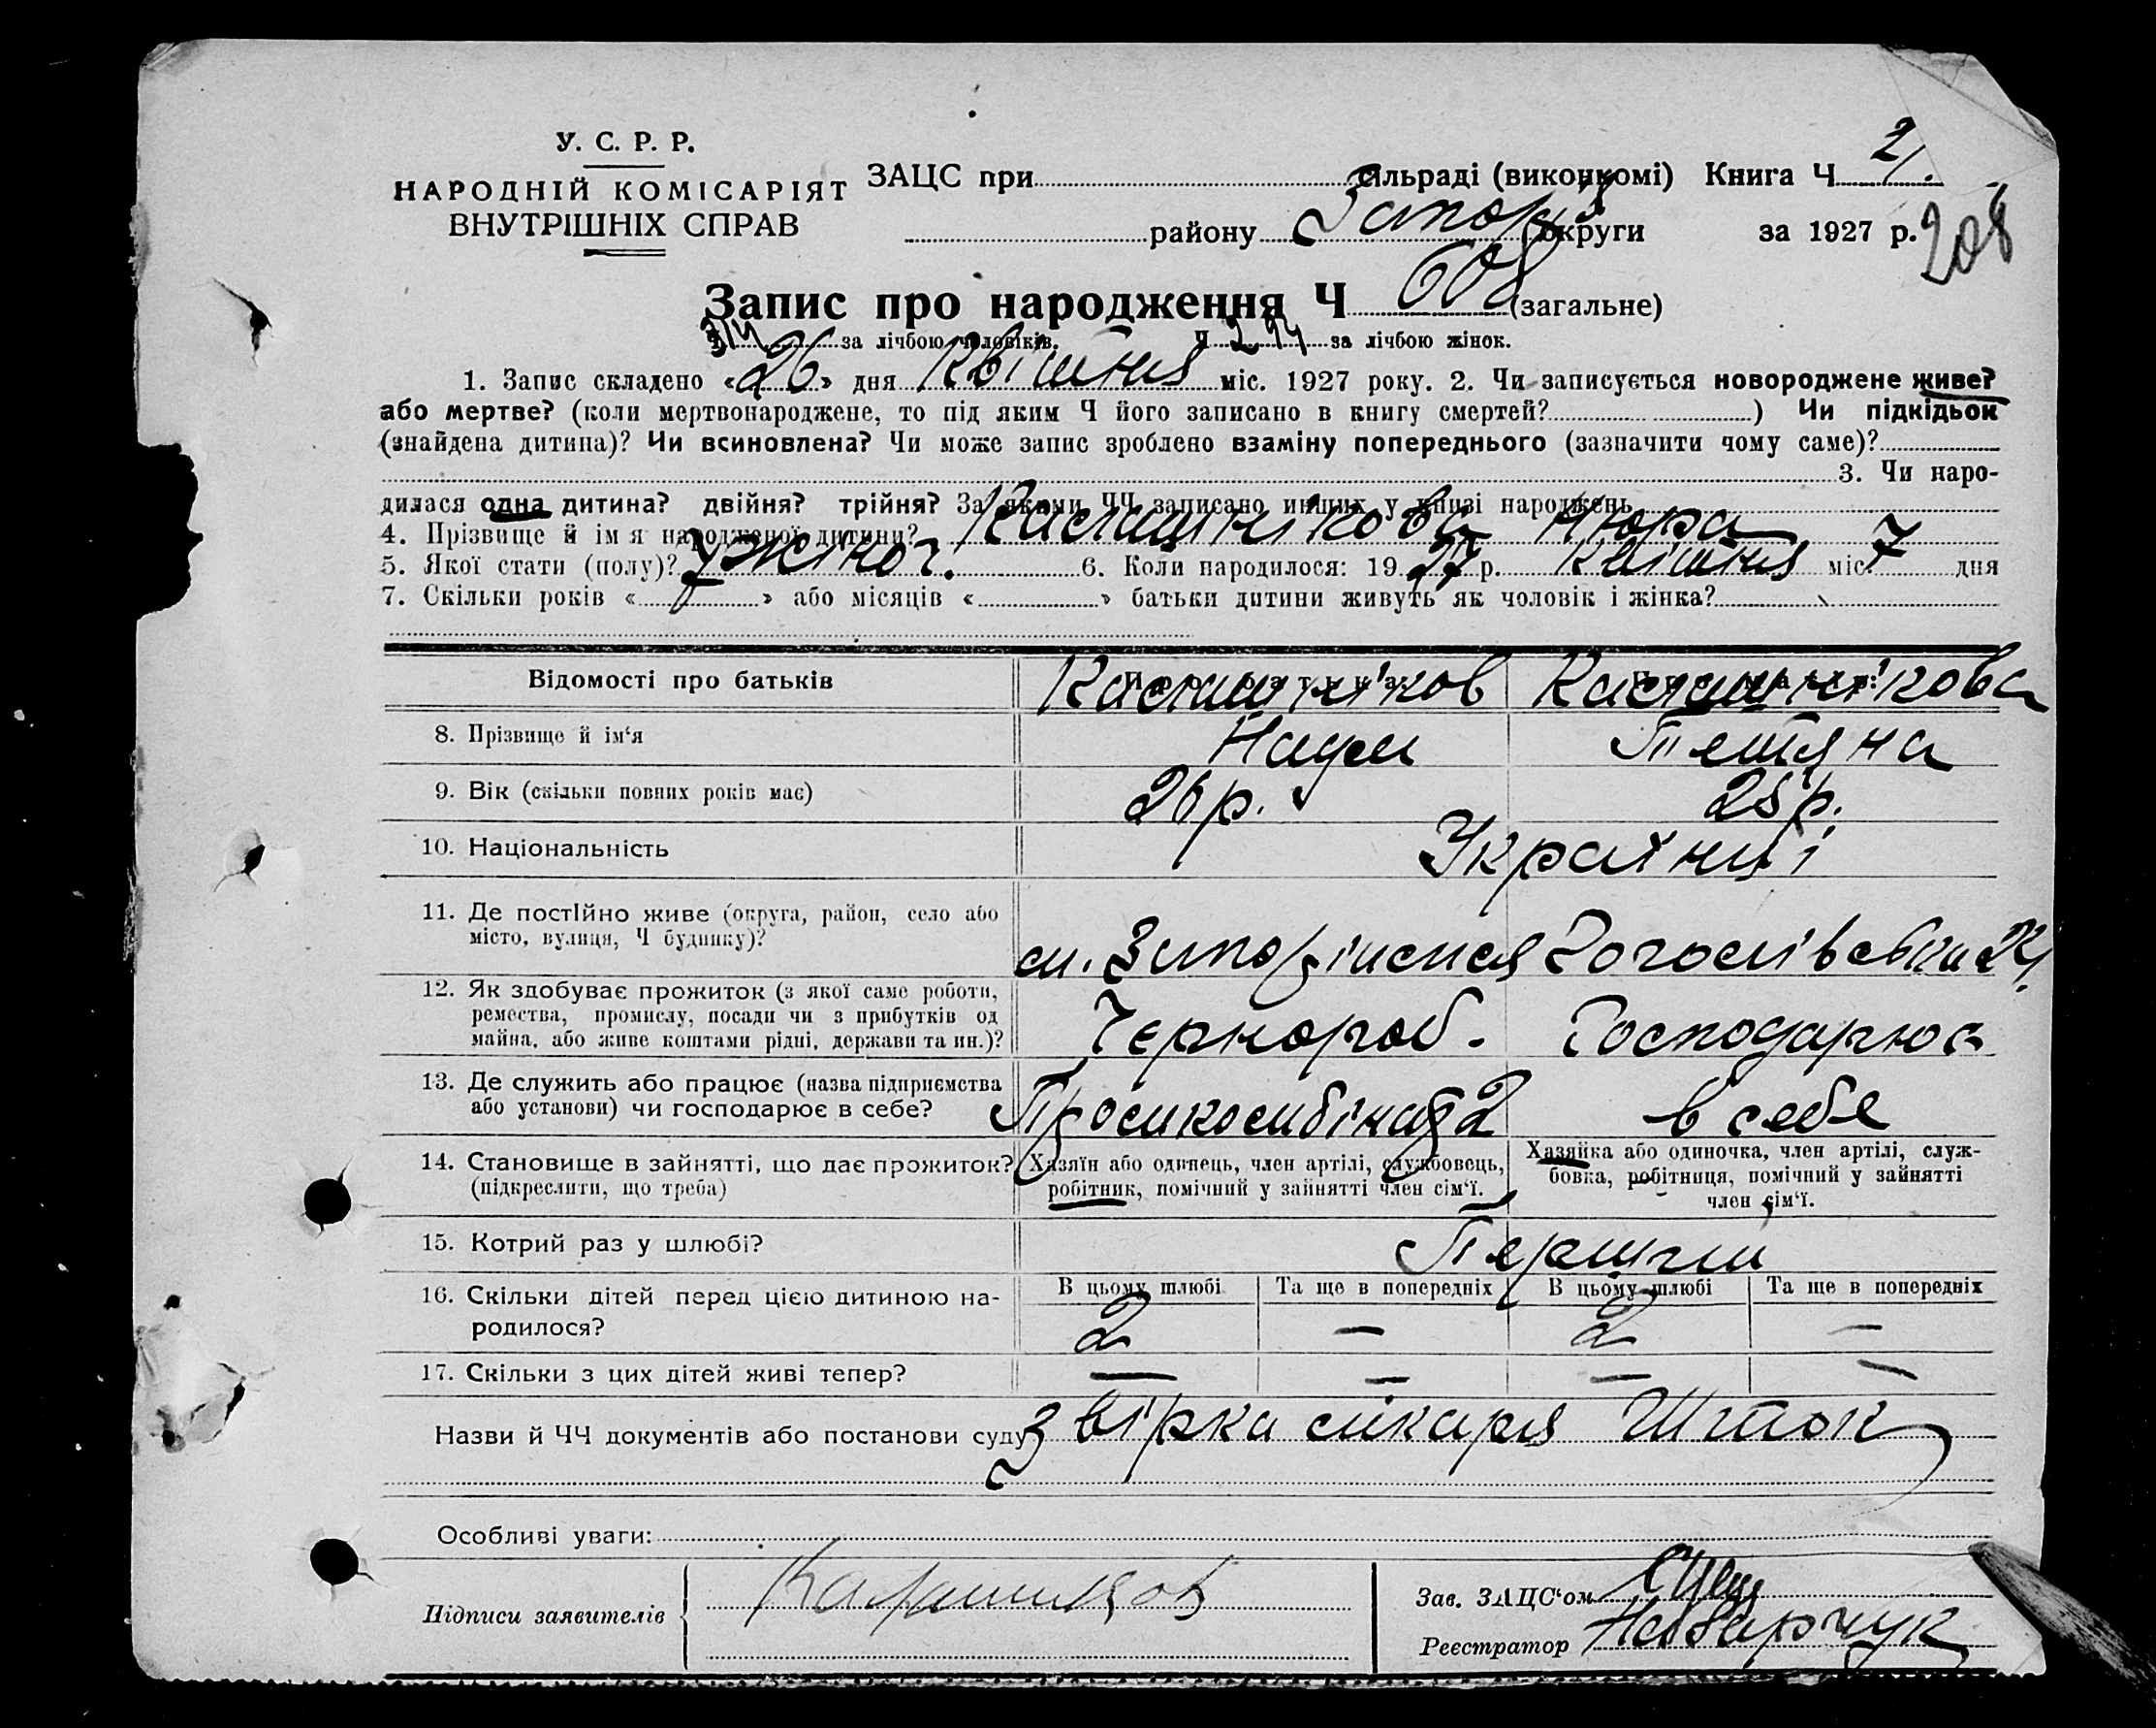 У. С. Р. Р.
НАРОДНІЙ КОМІСАРІЯТ
ВНУТРІШНІХ СПРАВ
ЗАЦС при сільраді (виконкомі) Книга Ч 2
району Запоріз округи за 1927 р. 208
Запис про народження Ч 608 (загальне)
Ч 314 за лічбою чоловіків. Ч 294 за лічбою жінок.
1. Запис складено «26» дня Квітня міс. 1927 року. 2. Чи записується новороджене живе?
або мертве? (коли мертвонароджене, то під яким Ч його записано в книгу смертей? ) Чи підкідьок
(знайдена дитина)? Чи всиновлена? Чи може запис зроблено взаміну попереднього (зазначити чому саме)?
3. Чи наро-
дилася одна дитина? двійня? трійня? За якими ЧЧ записано инших у книзі народжень
4. Прізвище й ім я народженої дитини? Нюра
5. Якої стати (полу)? жіноч. 6. Коли народилося: 1927 р. Квітня міс. 7 дня
7. Скільки років «7» або місяців « » батьки дитини живуть як чоловік і жінка?
Відомості про батьків
8. Прізвище й ім‘я Наум Тетяна
9. Вік (скільки повних років має) 26 р. 25 р.
10. Національність Українці
11. Де постійно живе (округа, район, село або
місто, вулиця, Ч будинку)? м. Запоріжжя
12. Як здобуває прожиток (з якої саме роботи,
ремества, промислу, посади чи з прибутків од
майна, або живе коштами рідні, держави та ин.)? Чернороб. Господарює
13. Де служить або працює (назва підприємства
або установи) чи господарює в себе? 2 в себе
14. Становище в зайнятті, що дає прожиток?
(підкреслити, що треба)
Хазяїн або одинець, член артілі, службовець,
робітник, помічний у зайнятті член сім‘ї.
Хазяйка або одиночка, член артілі, служ-
бовка, робітниця, помічний у зайнятті
член сім‘ї.
15. Котрий раз у шлюбі? Перший
16. Скільки дітей перед цією дитиною на-
родилося?
В цьому шлюбі Та ще в попередніх В цьому шлюбі Та ще в попередніх
2 — 2 —
17. Скільки з цих дітей живі тепер? — — — —
Назви й ЧЧ документів або постанови суду
Особливі уваги:
Підписи заявителів
Зав. ЗАЦС‘ом
Реєстратор